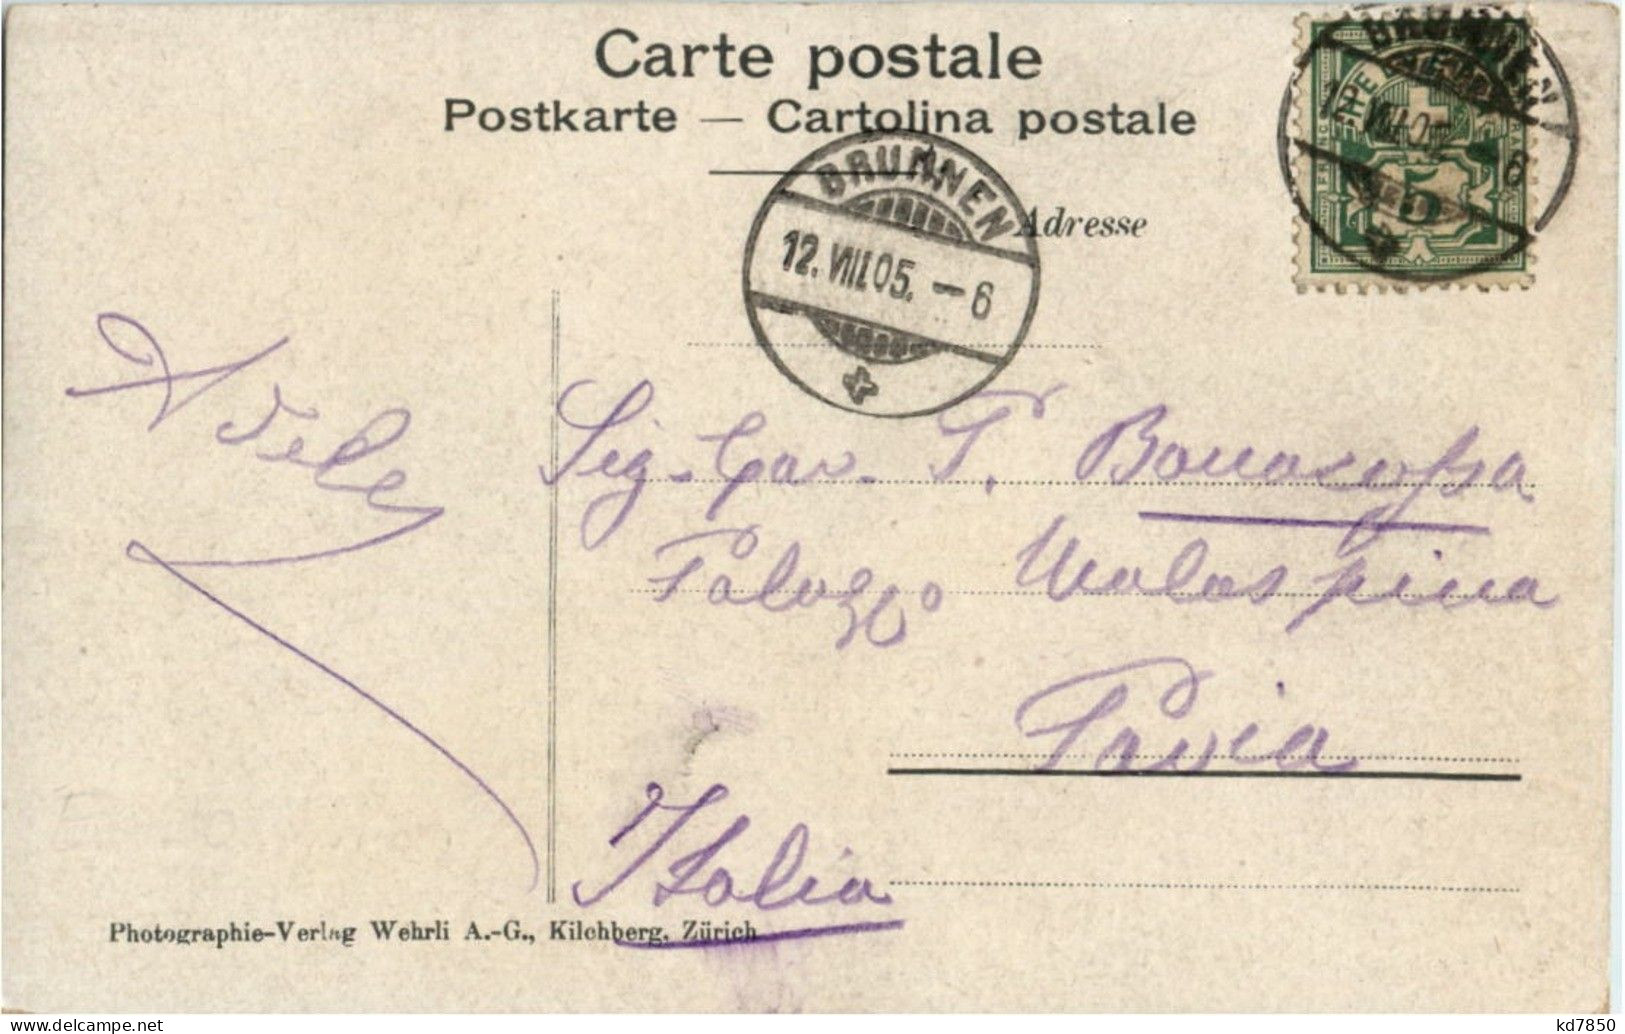 Carte postale
Postkarte — Cartolina postale
BRUNNEN
12.VIII.05. – 6
BRUNNEN
12.VIII.05. – 6
5
Adresse
Adele
Sig. Cav. P. Bonacossa
Palazzo Malaspina
Pavia
Italia
Photographie-Verlag Wehrli A.-G., Kilchberg, Zürich
kd7850